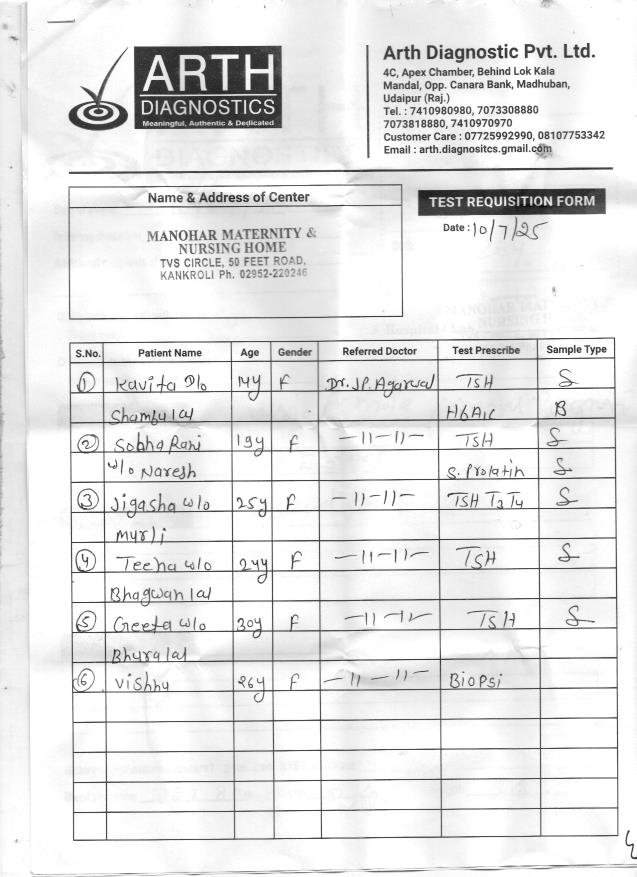 ARTH
DIAGNOSTICS
Meaningful, Authentic & Dedicated
Arth Diagnostic Pvt. Ltd.
4C, Apex Chamber, Behind Lok Kala
Mandal, Opp. Canara Bank, Madhuban,
Udaipur (Raj.)
Tel. : 7410980980, 7073308880
7073818880, 7410970970
Customer Care : 07725992990, 08107753342
Email : arth.diagnositcs.gmail.com
Name & Address of Center
MANOHAR MATERNITY &
NURSING HOME
TVS CIRCLE, 50 FEET ROAD,
KANKROLI Ph. 02952-220246
TEST REQUISITION FORM
Date : 10/7/25
S.No. Patient Name Age Gender Referred Doctor Test Prescribe Sample Type
1 Kavita D/o 14y F Dr. J.P. Agarwal TSH S
Shambulal HbA1c B
2 Sobha Rani 19y F -11-11- TSH S
w/o Naresh S. Prolatin S
3 Jigasha w/o 25y F -11-11- TSH T3 T4 S
Murli
4 Teena w/o 24y F -11-11- TSH S
Bhagwanlal
5 Geeta w/o 30y F -11-11- TSH S
Bhuralal
6 Vishnu 26y F -11-11- Biopsi